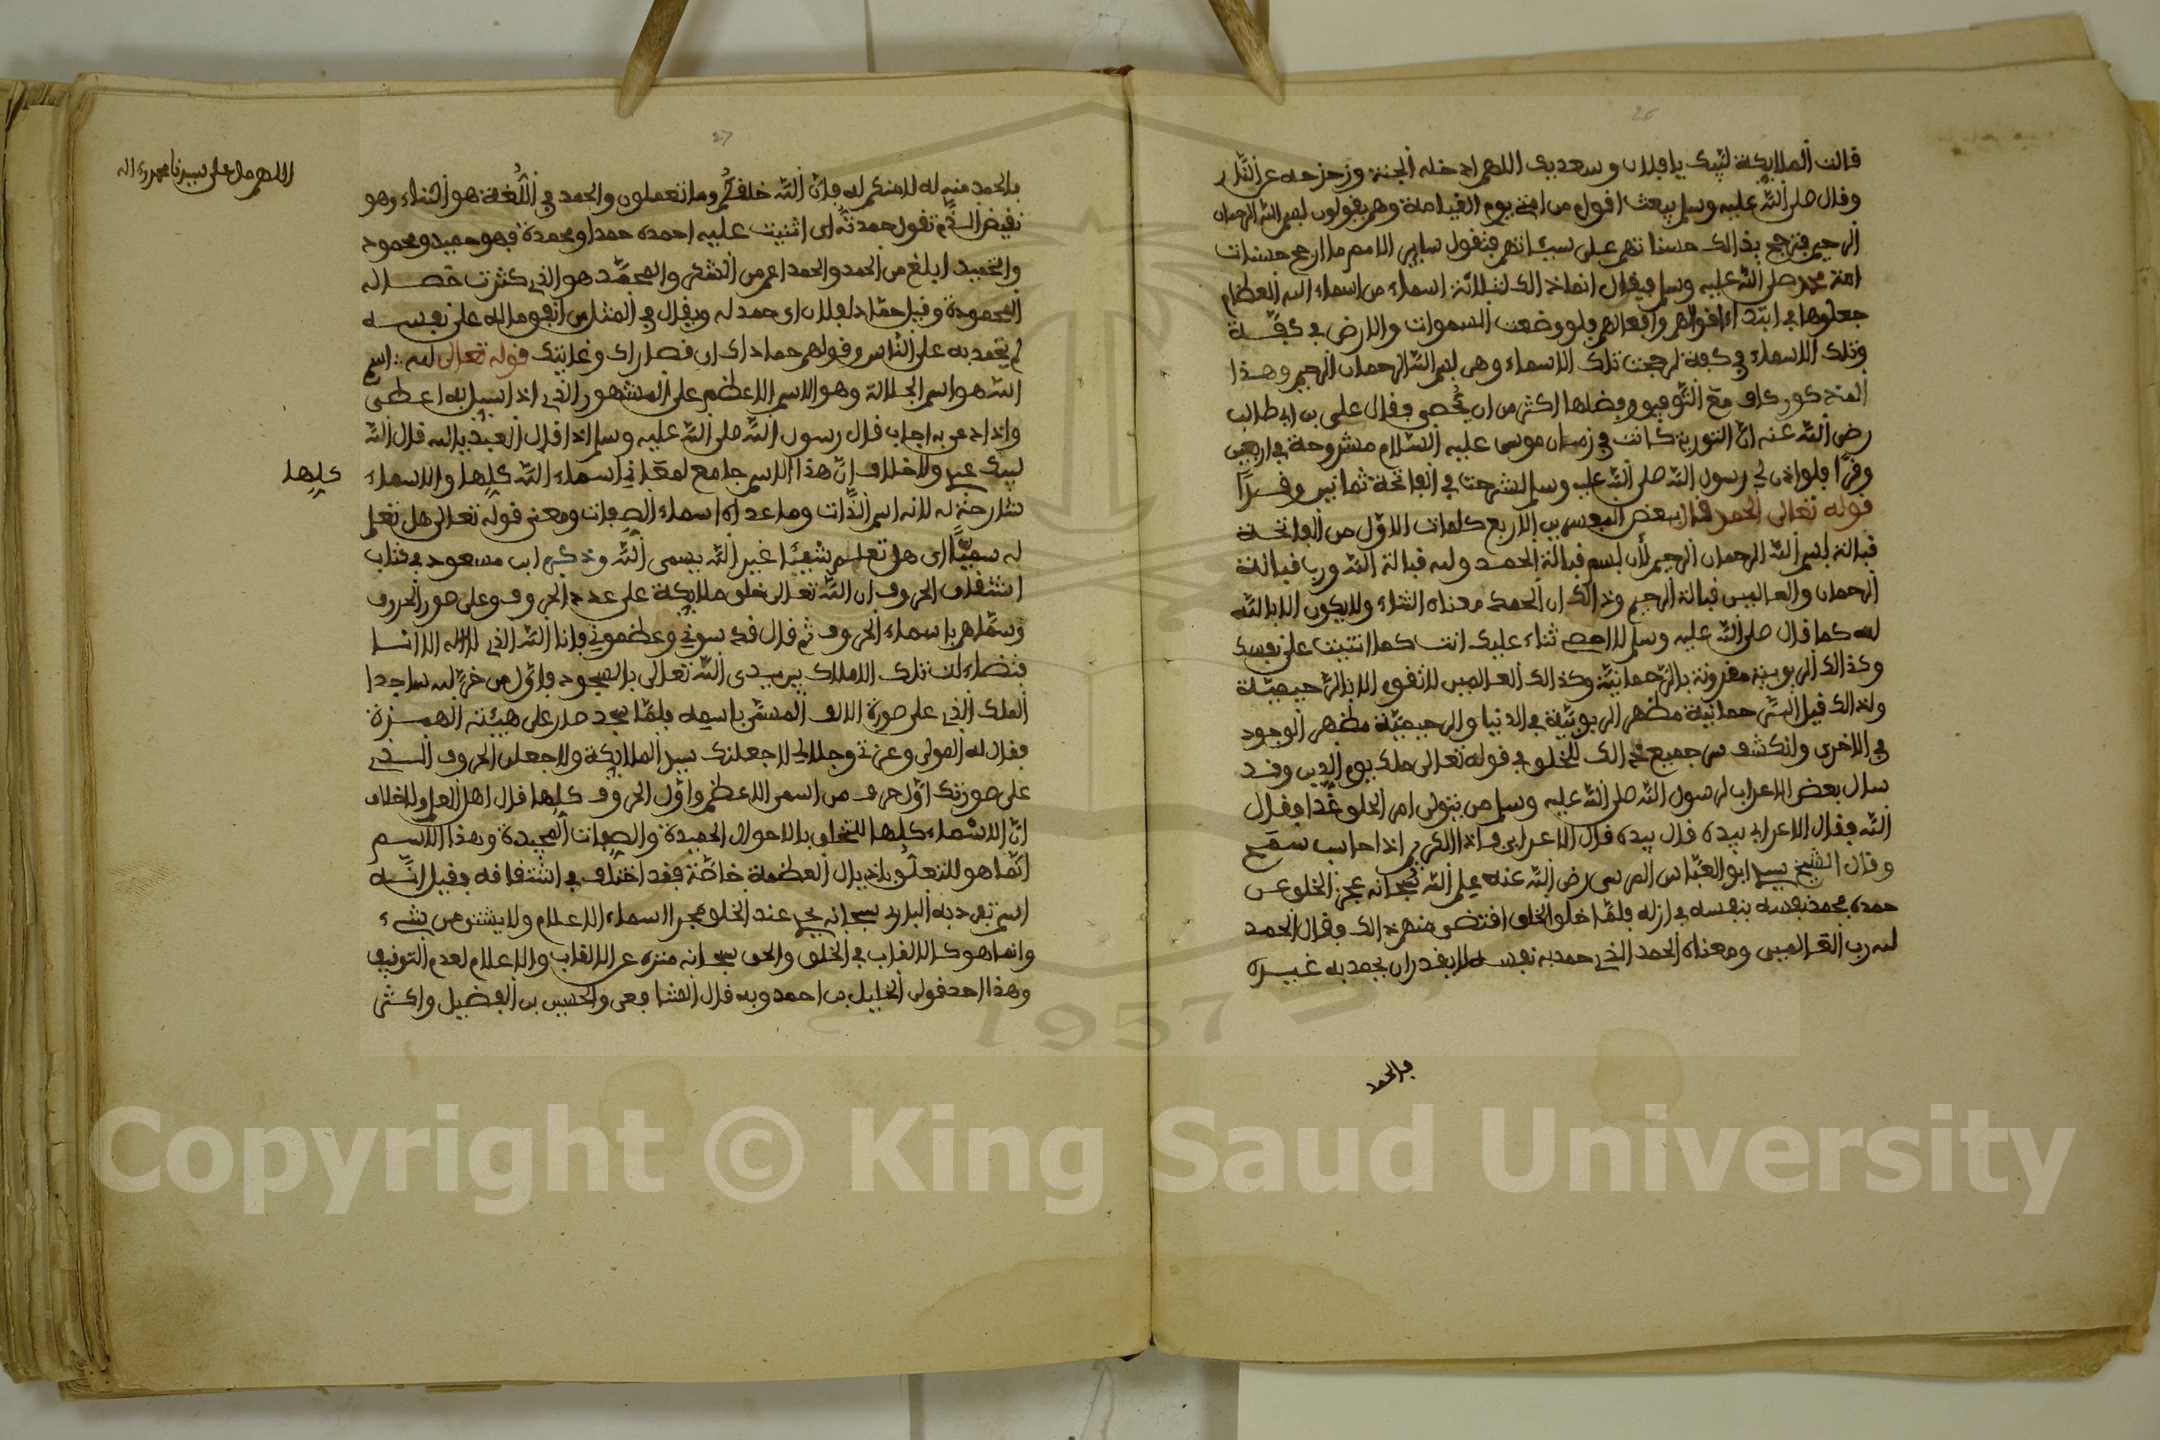 26
قالت الملايكة لبيك يا فلان وسعديك اللهم ادخله الجنة وزحزحه عن النار
وقال صلى الله عليه وسلم يبعث اقوام من امتي يوم القيامة وهم يقولون بسم الله الرحمان
الرحيم فترجح بذالك حسناتهم على سيئاتهم فتقول ساير الامم ما ارجح حسنات
امة محمد صلى الله عليه وسلم فيقال انما ذالك لثلاثة اسماء من اسماء الله العظام
جعلوها في ابتداء اقوالهم وافعالهم فلو وضعت السموات والارض في كفة
وتلك الاسماء في كفة لرجحت تلك الاسماء وهي بسم الله الرحمان الرحيم وهذا
المذكور كاف مع التوفيق وفضلها اكثر من ان يحصى وقال علي بن ابي طالب
رضي الله عنه ان التورية كانت في زمان موسى عليه السلام مشروحة في اربعين
وقرا فلو اذن لي رسول الله صلى الله عليه وسلم لشرحت في الفاتحة ثمانين وقرا
قوله تعالى الحمد قال بعض المفسرين الاربع كلمات الاول من الفاتحة
قبالة بسم الله الرحمان الرحيم لأن بسم قبالة الحمد ولله قبالة الله ورب قبالة
الرحمان والعالمين قبالة الرحيم وذالك ان الحمد معناه الثناء ولا يكون الا بالله
لله كما قال صلى الله عليه وسلم لا احصي ثناء عليك انت كما اثنيت على نفسك
وكذالك الربوبية مقرونة بالرحمانية وكذالك العالمين لا تقوم الا بالرحيمية
ولذالك قيل الرحمانية مظهر الربوبية في الدنيا والرحيمية مظهر الوجود
في الاخرى وانكشف من جميع ذالك للخلق في قوله تعالى ملك يوم الدين وقد
سال بعض الاعراب لرسول الله صلى الله عليه وسلم من يتولى امر الخلق غدا فقال
الله فقال الاعرابي بيده قال بيده قال الاعرابي فاذا الكريم اذا حاسب سمح
وقال الشيخ سيدي ابو العباس المرسي رضي الله عنه علم الله سبحانه عجز الخلق عن
حمده فحمد نفسه بنفسه في ازله فلما خلق الخلق اقتضى منهم ذالك فقال الحمد
لله رب العالمين ومعناه الحمد الذي حمد به نفسه لا يقدر ان يحمد به غيره
فالحمد
27
اللهم صل على سيدنا محمد واله
فالحمد منه له لا منكم له فان الله خلقكم وما تعملون والحمد في اللغة هو الثناء وهو
نقيض الذم تقول حمدته اي اثنيت عليه احمده حمدا ومحمدة فهو حميد ومحمود
والتحميد ابلغ من الحمد والحمد اعم من الشكر والمحمد هو الذي كثرت خصاله
المحمودة وقيل حمادا لفلان اي حمد له ويقال في المثل من انفق ماله على نفسه
لم يحمد به على الناس وقولهم حماداك اي قصاراك وغايتك قوله تعالى لله اسم
الله هو اسم الجلالة وهو الاسم الاعظم على المشهور الذي اذا سيل به اعطى
واذا دعي به اجاب قال رسول الله صلى الله عليه وسلم اذا قال العبد يا الله قال الله
لبيك عبدي ولا خلاف ان هذا الاسم جامع لمعاني اسماء الله كلها والاسماء
كلها
شارحة له لانه اسم الذات وما عداه اسماء الصفات ومعنى قوله تعالى هل تعلم
له سميا اي هل تعلم شيئا غير الله يسمى الله وذكر ابن مسعود في كتاب
اشتقاق الحروف ان الله تعالى خلق ملايكة على عدد الحروف وعلى صور الحروف
وسماهم باسماء الحروف ثم قال قدسوني وعظموني فانا الله الذي لا اله الا انا
فتضاءلت تلك الاملاك بين يدي الله تعالى بالسجود فاول من خر لله ساجدا
الملك الذي على صورة الالف المسمى باسمه فلما سجد صار على هيئة الهمزة
فقال له المولى وعزتي وجلالي لاجعلنك سيد الملايكة ولاجعلن الحرف الذي
على صورتك اول حرف من اسمي الاعظم واول الحروف كلها قال اهل العلم ولا خلاف
ان الاسماء كلها للتخلق بالاحوال الحميدة والصفات المجيدة وهذا الاسم
انما هو للتعلق باذيال العظمة خاصة فقد اختلف في اشتقاقه فقيل انه
اسم تفرد به الباري سبحانه يجري عند الخلق مجرا اسماء الاعلام ولا يشتق من شيء
وانما هو كالالقاب في الخلق والحق سبحانه منزه عن الالقاب والاعلام لعدم التوقيف
وهذا احد قولي الخليل بن احمد وبه قال الشافعي والحسين بن الفضيل واكثر
Copyright © King Saud University
1957